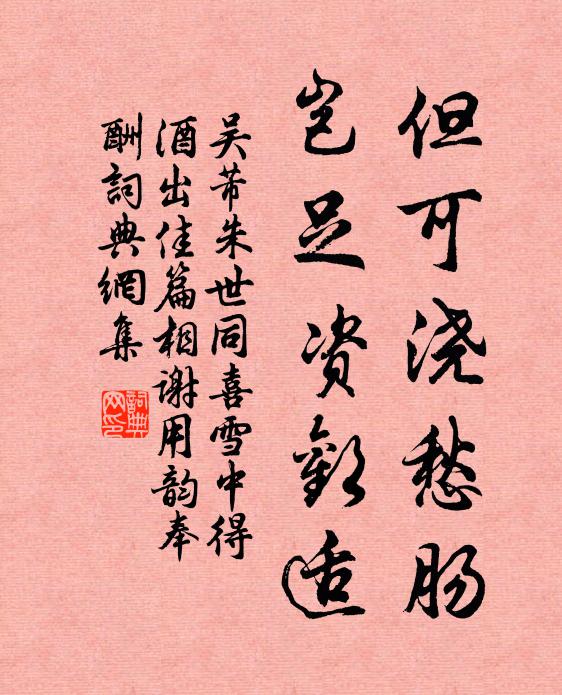 但可浇愁肠
岂足资欢适
吴芾朱世同喜雪中得
酒出佳篇相谢用韵奉
酬词典网集
詞典
网印